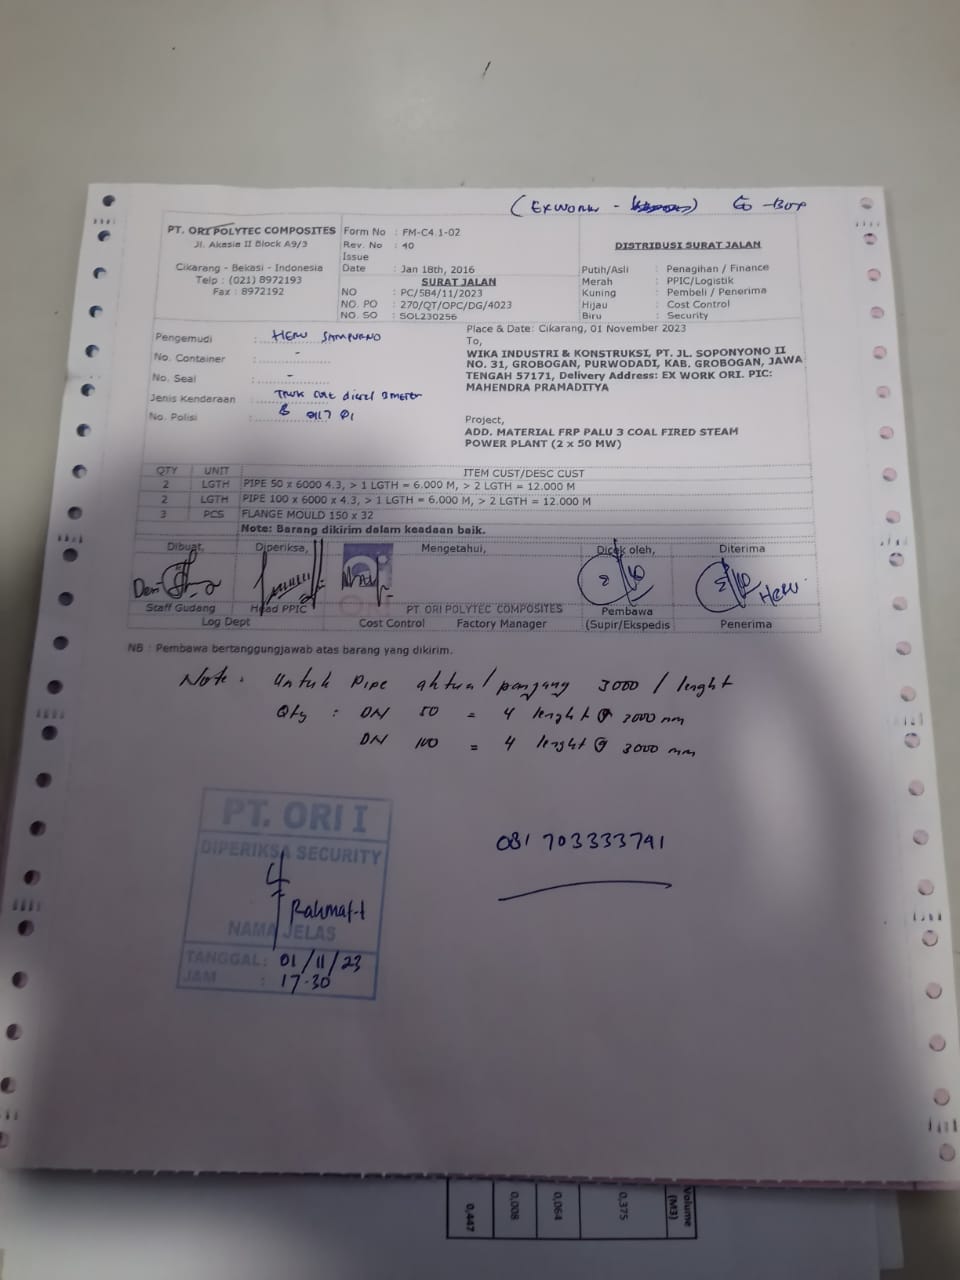 (EXWORK - ) Go -Box
PT. ORI POLYTEC COMPOSITES
Jl. Akasia II Block A9/3
Cikarang - Bekasi - Indonesia
Telp : (021) 8972193
Fax : 8972192
Form No : FM-C4.1-02
Rev. No : 40
Issue
Date : Jan 18th, 2016
SURAT JALAN
NO : PC/584/11/2023
NO. PO : 270/QT/OPC/DG/4023
NO. SO : SOL230256
DISTRIBUSI SURAT JALAN
Putih/Asli : Penagihan / Finance
Merah : PPIC/Logistik
Kuning : Pembeli / Penerima
Hijau : Cost Control
Biru : Security
Pengemudi : HERU SAMPURNO
No. Container : -
No. Seal : -
Jenis Kendaraan : Truk diesel
No. Polisi : B
Place & Date: Cikarang, 01 November 2023
To,
WIKA INDUSTRI & KONSTRUKSI, PT. JL. SOPONYONO II
NO. 31, GROBOGAN, PURWODADI, KAB. GROBOGAN, JAWA
TENGAH 57171, Delivery Address: EX WORK ORI. PIC:
MAHENDRA PRAMADITYA
Project,
ADD. MATERIAL FRP PALU 3 COAL FIRED STEAM
POWER PLANT (2 x 50 MW)
QTY UNIT ITEM CUST/DESC CUST
2 LGTH PIPE 50 x 6000 4.3, > 1 LGTH = 6.000 M, > 2 LGTH = 12.000 M
2 LGTH PIPE 100 x 6000 x 4.3, > 1 LGTH = 6.000 M, > 2 LGTH = 12.000 M
3 PCS FLANGE MOULD 150 x 32
Note: Barang dikirim dalam keadaan baik.
Dibuat, Diperiksa, Mengetahui, Dicek oleh, Diterima
Heru
Staff Gudang Head PPIC PT ORI POLYTEC COMPOSITES Pembawa
Log Dept Cost Control Factory Manager (Supir/Ekspedis Penerima
NB : Pembawa bertanggungjawab atas barang yang dikirim.
Note : Untuk Pipe aktual panjang 3000 / lenght
Qty : DN 50 = 4 lenght @ 3000 mm
DN 100 = 4 lenght @ 3000 mm
081 703333741
PT. ORI I
DIPERIKSA SECURITY
Rahmat-t
NAMA JELAS
TANGGAL : 01/11/23
JAM : 17.30
Volume
(M3)
0,375
0,064
0,008
0,447